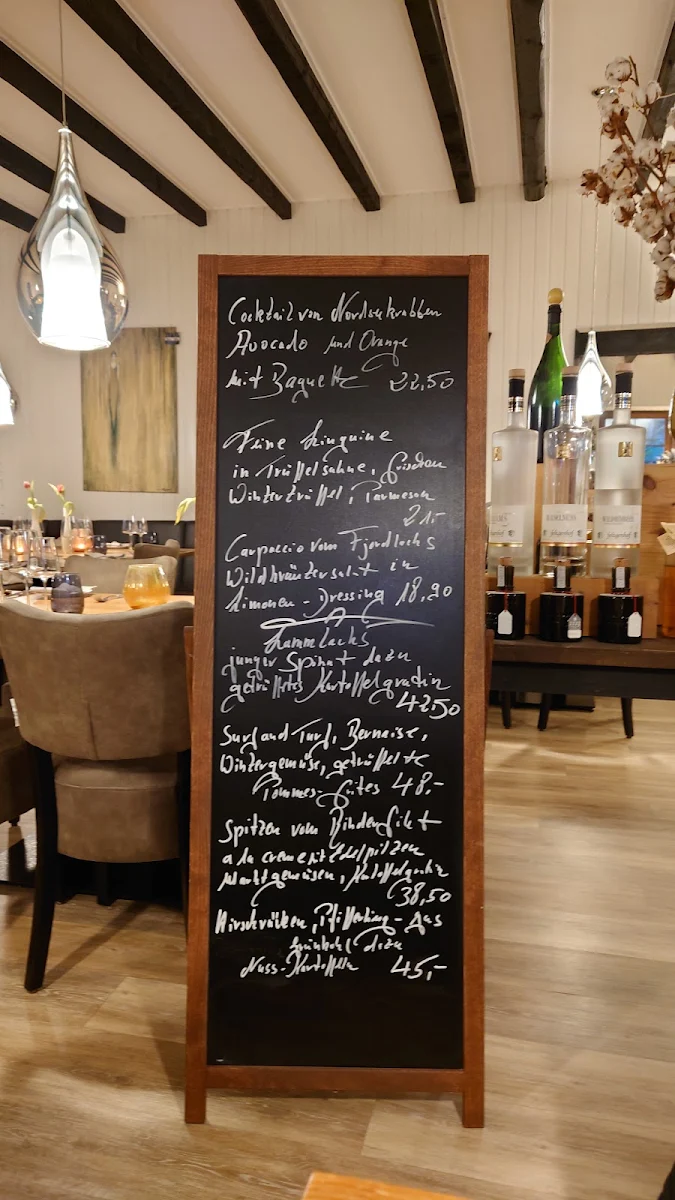 Cocktail von Nordseekrabben
Avocado und Orange
mit Baguette 22,50
Feine Linguine
in Trüffelsahne, frischen
Wintertrüffel, Parmesan
21,-
Carpaccio vom Fjordlachs
Wildkräutersalat in
Limonen-Dressing 18,90
Lammlachs
junger Spinat dazu
getrüffeltes Kartoffelgratin
42,50
Surf and Turf, Bernaise,
Wintergemüse, getrüffelte
Pommes-frites 48,-
Spitzen vom Rinderfilet
a la creme mit Edelpilzen
Marktgemüsen, Kartoffelgratin
38,50
Hirschrücken, Pfifferling-Jus
Grünkohl dazu
Nuss-Kartoffeln 45,-